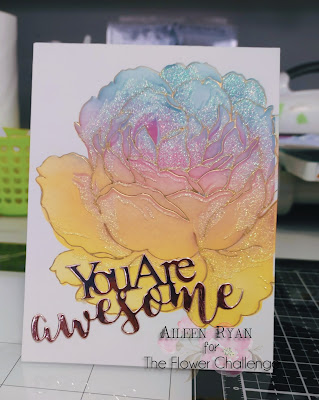 You Are
awesome
AILEEN RYAN
for
The Flower Challenge